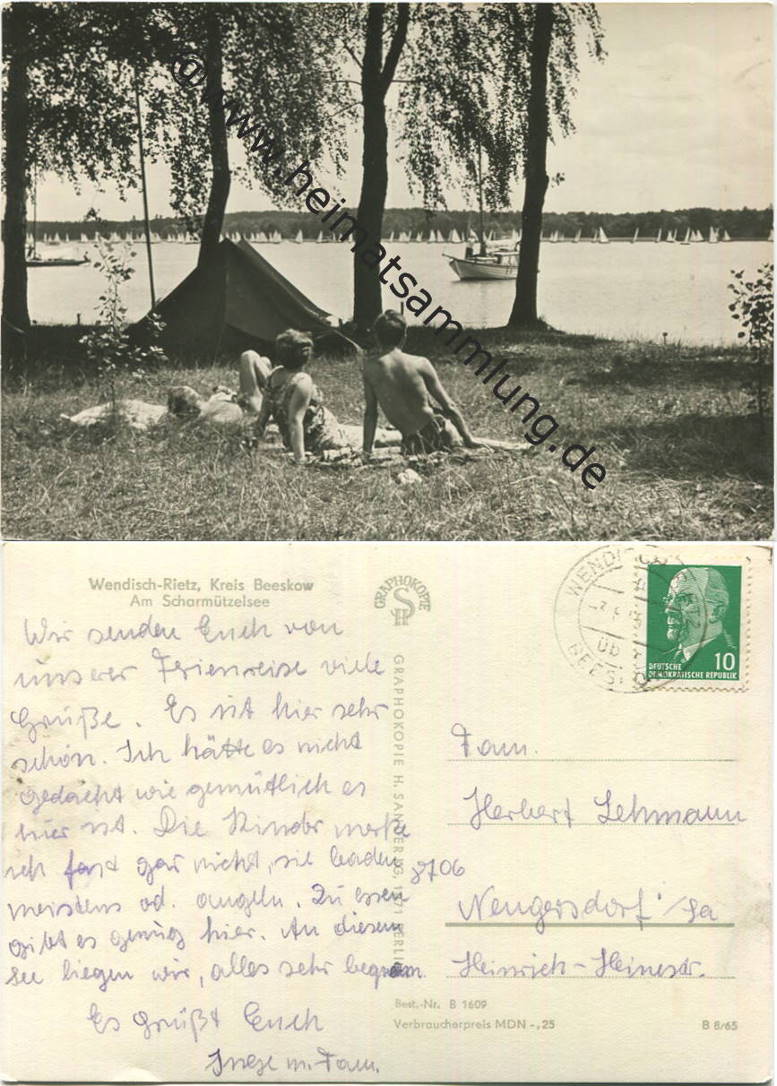 © www.heimatsammlung.de
Wendisch-Rietz, Kreis Beeskow
Am Scharmützelsee
Wir senden Euch von
unserer Ferienreise viele
Grüße. Es ist hier sehr
schön. Ich hätte es nicht
gedacht wie gemütlich es
hier ist. Die Kinder merke
ich fast gar nicht, sie baden
meistens od. angeln. Zu essen
gibt es genug hier. An diesem
See liegen wir, alles sehr bequem
Es grüßt Euch
Inge m. Fam.
GRAPHOKOPIE
GRAPHOKOPIE H. SANDER KG, BERLIN
WENDISCH RIETZ
BEESKOW
10
DEUTSCHE
DEMOKRATISCHE REPUBLIK
Fam.
Herbert Lehmann
8706
Neugersdorf/Sa
Heinrich-Heinestr.
Best.-Nr. B 1609
Verbraucherpreis MDN -,25
B 8/65